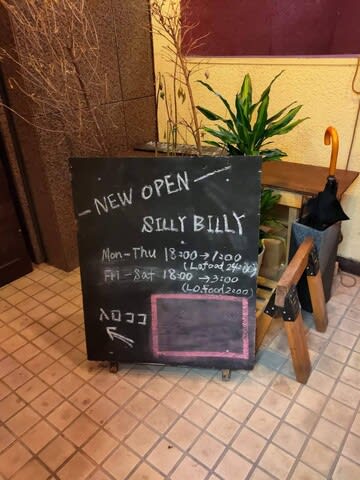 — NEW OPEN —
SILLY BILLY
Mon-Thu 18:00→1:00
(L.o food 24:00)
Fri-Sat 18:00→3:00
(L.o food 2:00)
入口ココ